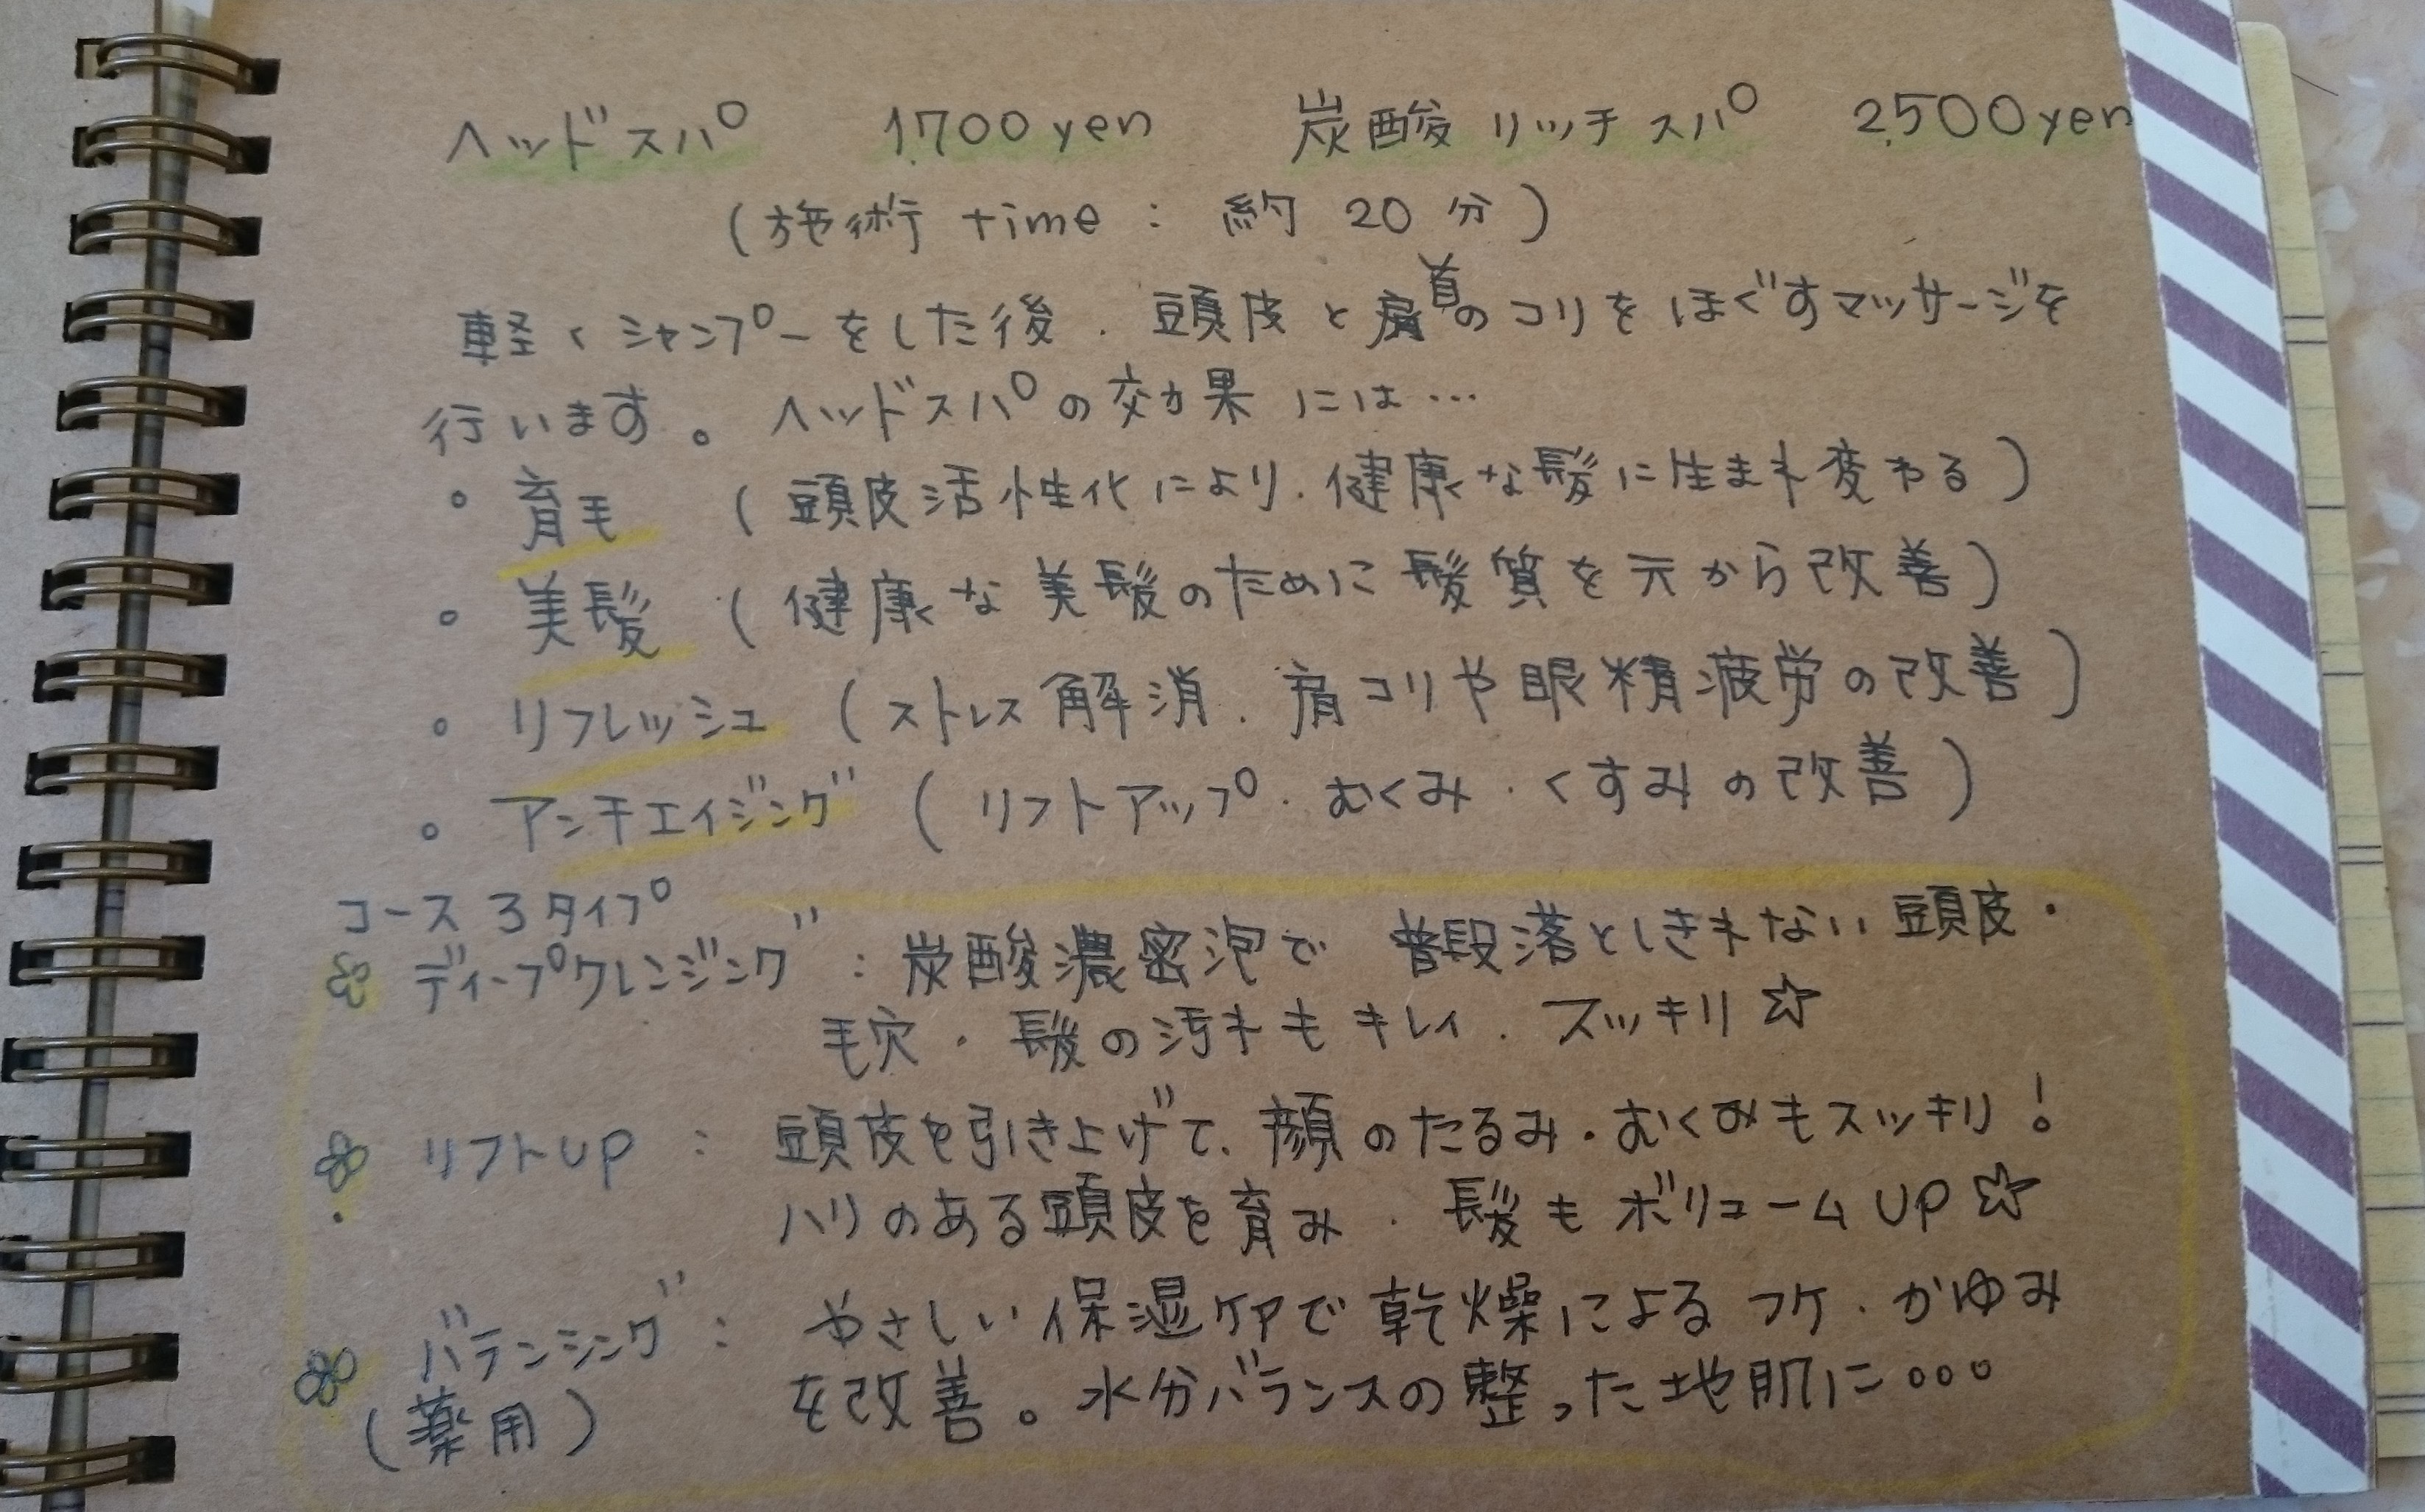 ヘッドスパ 1,700yen 炭酸リッチスパ 2,500yen
(施術time : 約20分)
軽くシャンプーをした後、頭皮と肩首のコリをほぐすマッサージを
行います。ヘッドスパの効果には…
・育毛 (頭皮活性化により、健康な髪に生まれ変わる)
・美髪 (健康な美髪のために髪質を元から改善)
・リフレッシュ (ストレス解消、肩コリや眼精疲労の改善)
・アンチエイジング (リフトアップ・むくみ・くすみの改善)
コース3タイプ
ディープクレンジング : 炭酸濃密泡で 普段落としきれない頭皮・
毛穴・髪の汚れもキレイ、スッキリ☆
リフトUP : 頭皮を引き上げて、顔のたるみ・むくみもスッキリ!
ハリのある頭皮を育み、髪もボリュームUP☆
バランシング : やさしい保湿ケアで乾燥によるフケ・かゆみ
(薬用) を改善。水分バランスの整った地肌に。。。